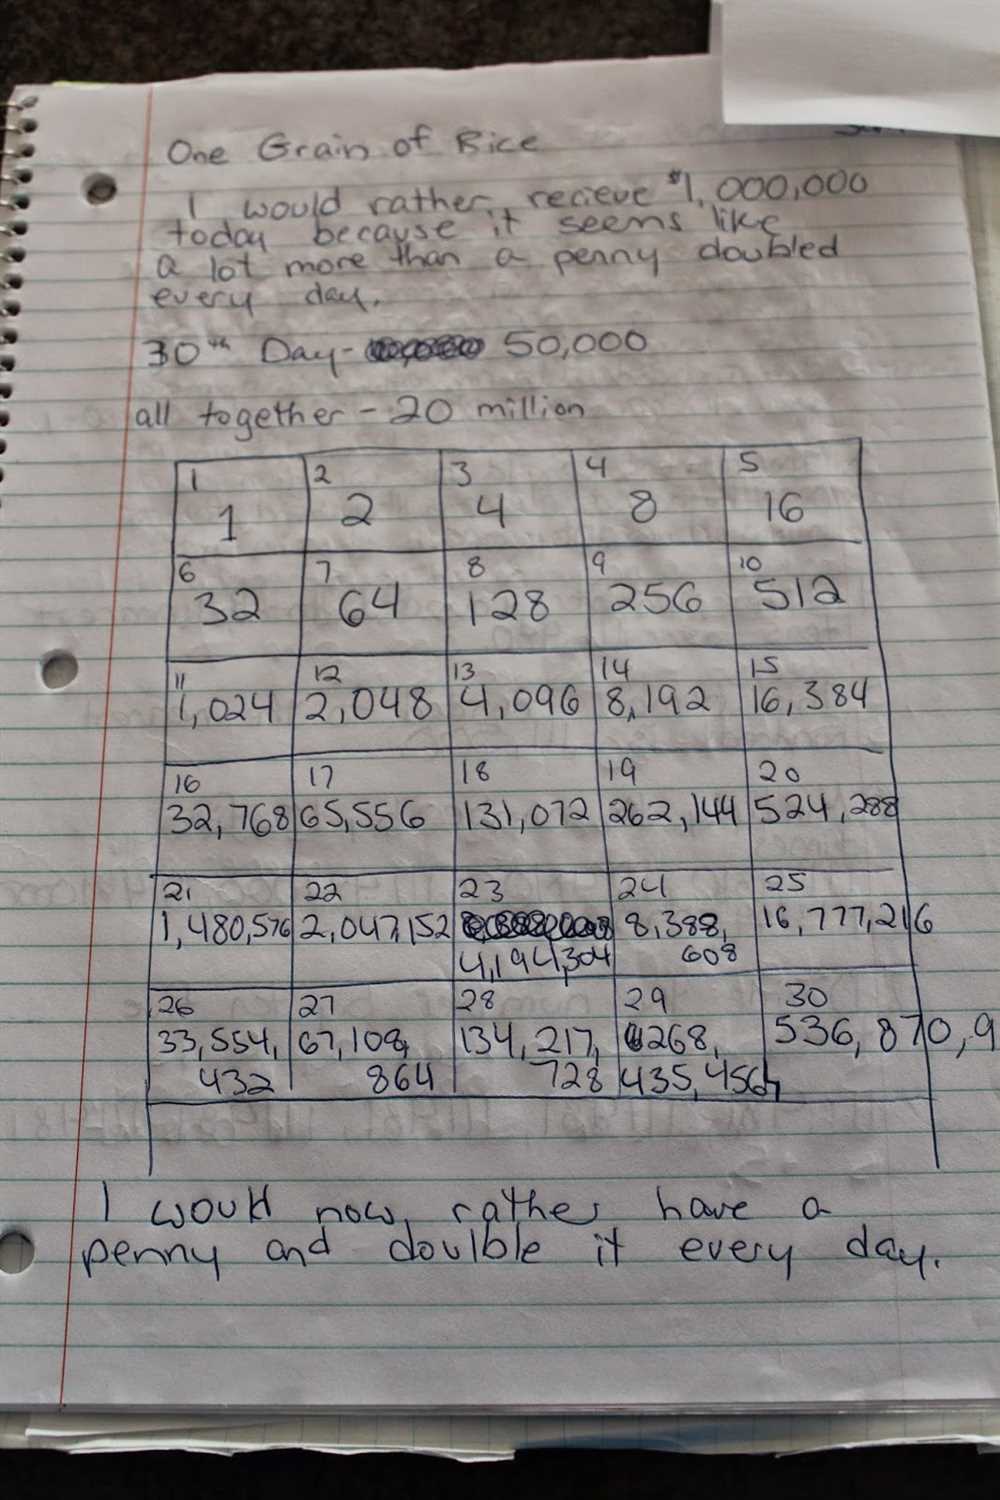 One Grain of Rice
I would rather recieve $1,000,000
today because it seems like
a lot more than a penny doubled
every day.
30th Day - 50,000
all together - 20 million
1 2 3 4 5
1 2 4 8 16
6 7 8 9 10
32 64 128 256 512
11 12 13 14 15
1,024 2,048 4,096 8,192 16,384
16 17 18 19 20
32,768 65,556 131,072 262,144 524,288
21 22 23 24 25
1,480,576 2,047,152 8,388, 16,777,216
4,194,304 608
26 27 28 29 30
33,554, 67,108, 134,217, 268, 536,870,9
432 864 728 435,456
I would now rather have a
penny and doulble it every day.